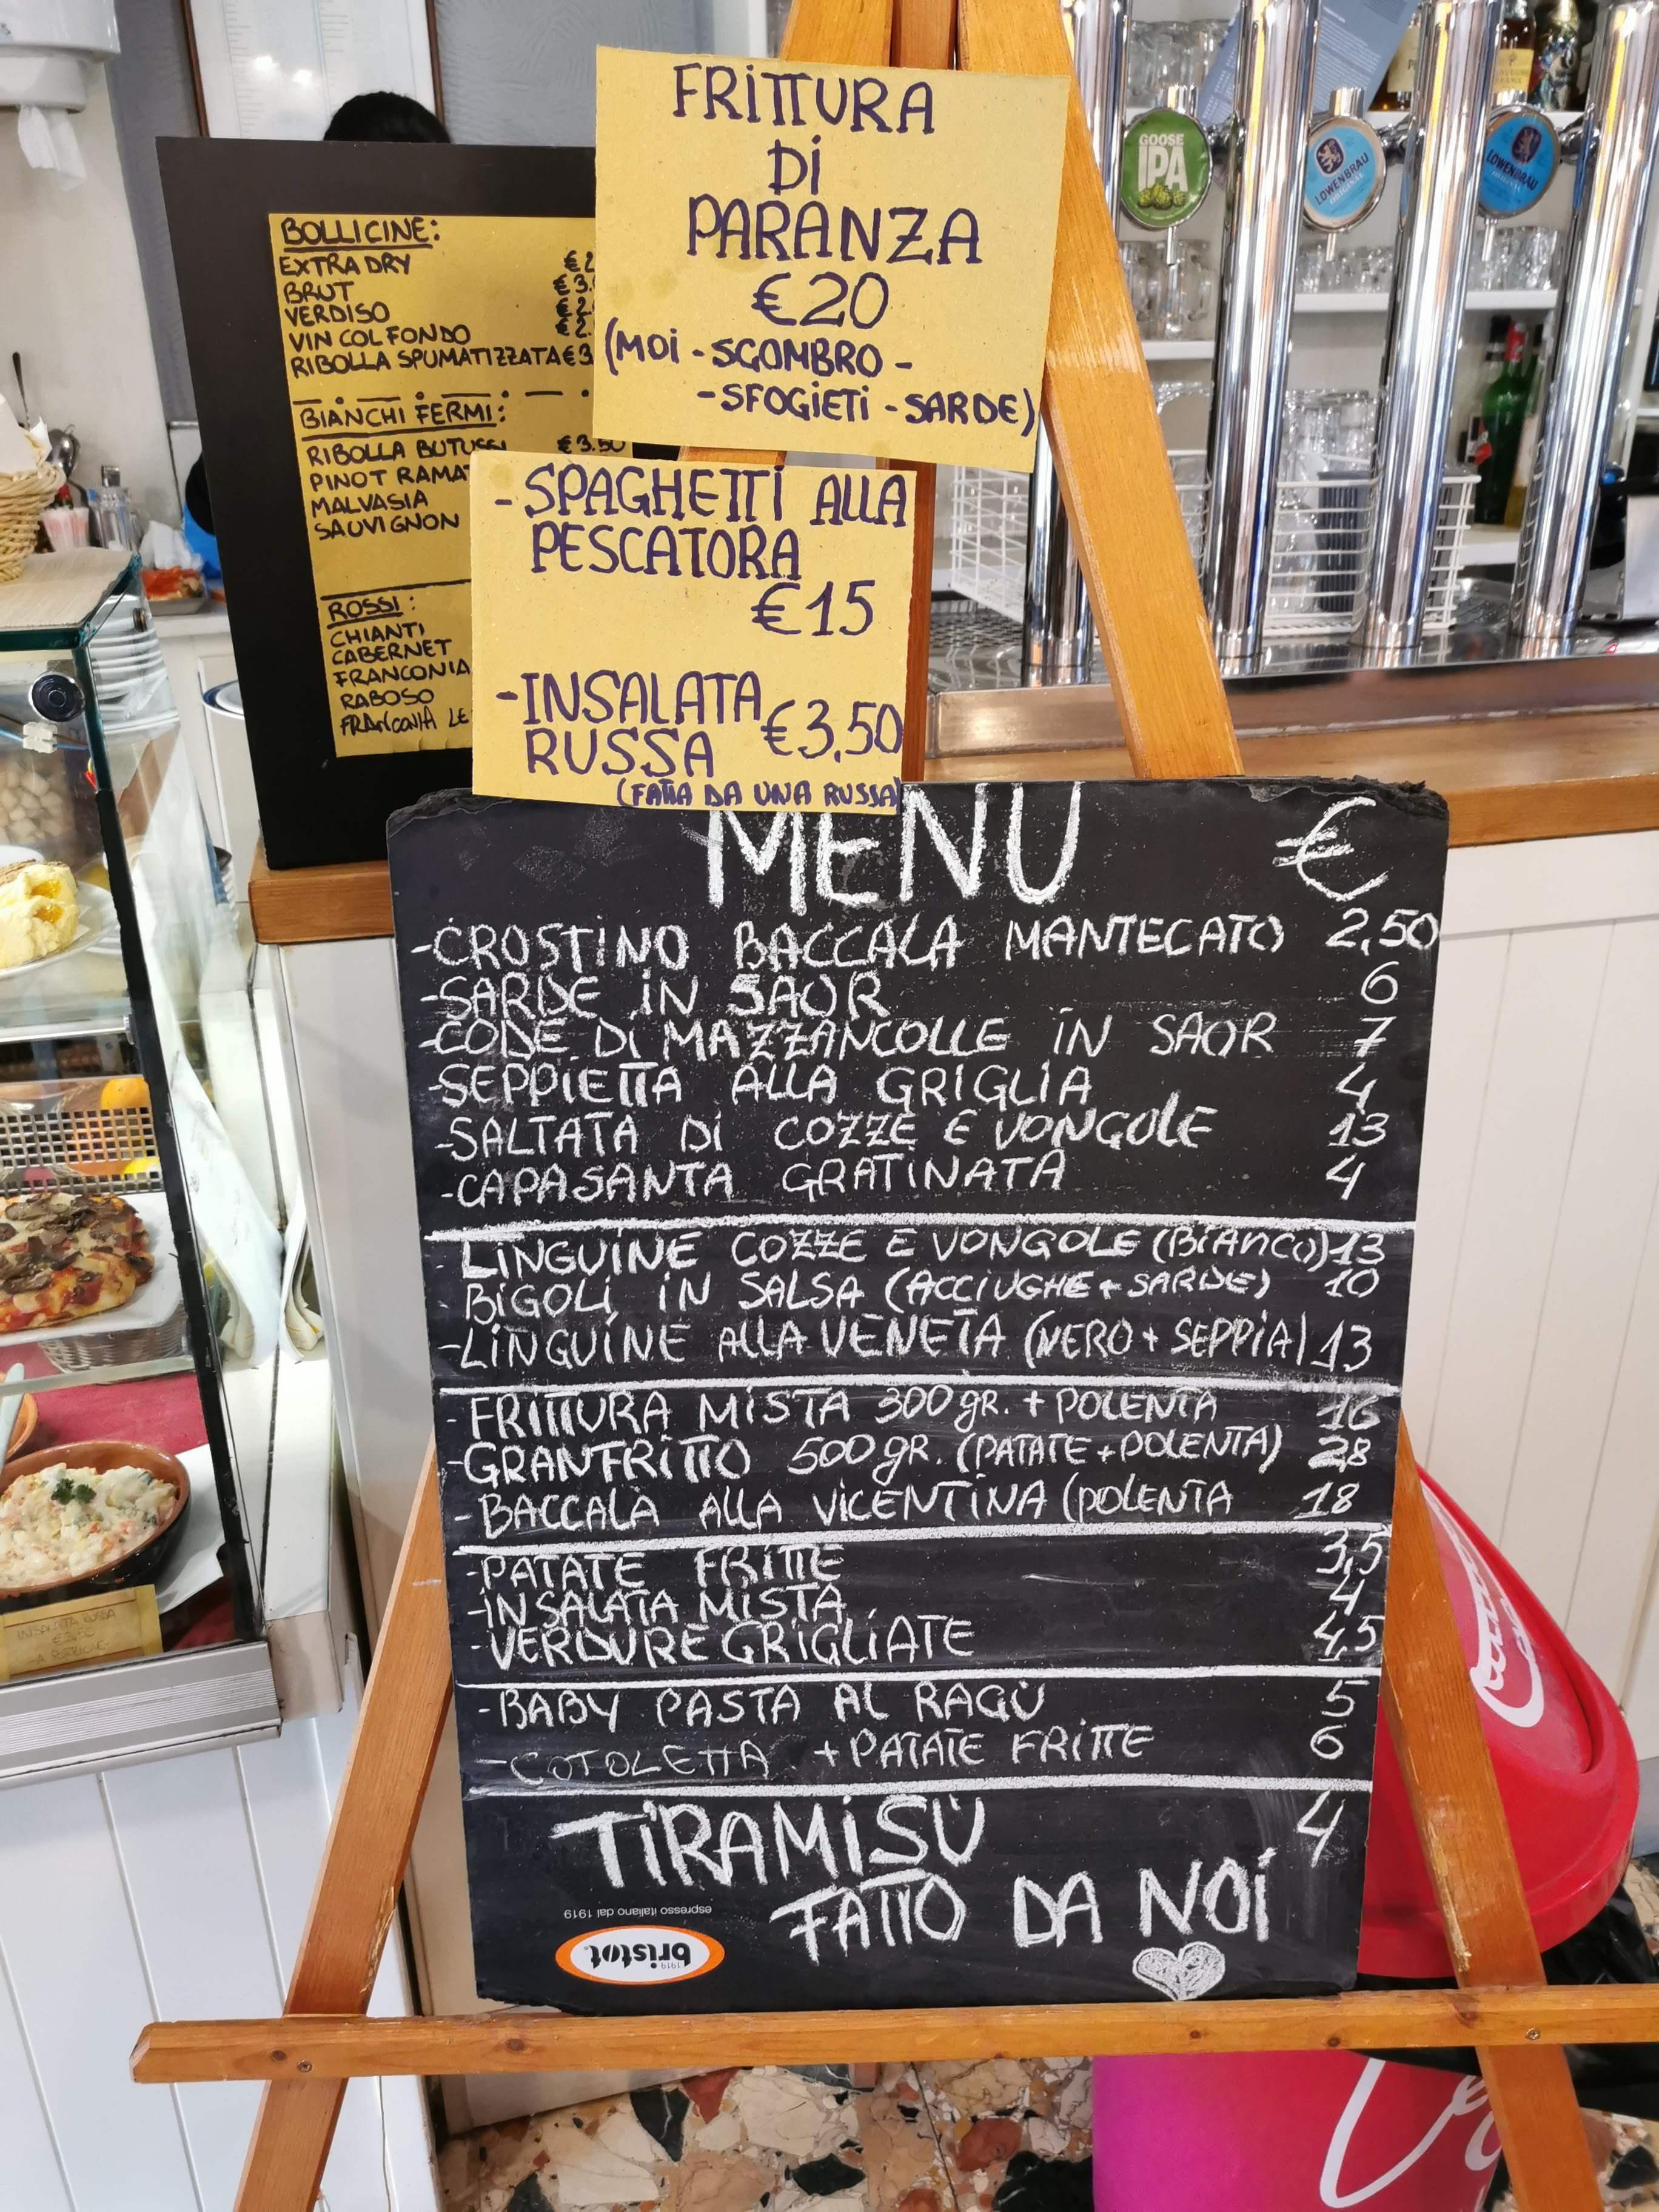 FRITTURA
DI
PARANZA
€20
(MOI - SGOMBRO -
- SFOGIETI - SARDE)
BOLLICINE:
EXTRA DRY €2
BRUT €3.
VERDISO €2
VIN COL FONDO €2
RIBOLLA SPUMATIZZATA €3
BIANCHI FERMI:
RIBOLLA BUTUSSI €3.50
PINOT RAMAT
MALVASIA
SAUVIGNON
ROSSI:
CHIANTI
CABERNET
FRANCONIA
RABOSO
FRANCONIA LE
- SPAGHETTI ALLA
PESCATORA
€15
- INSALATA
RUSSA €3,50
(FATTA DA UNA RUSSA)
MENU €
- CROSTINO BACCALA MANTECATO 2,50
- SARDE IN SAOR 6
- CODE DI MAZZANCOLLE IN SAOR 7
- SEPPIETTA ALLA GRIGLIA 4
- SALTATA DI COZZE E VONGOLE 13
- CAPASANTA GRATINATA 4
- LINGUINE COZZE E VONGOLE (BIANCO) 13
- BIGOLI IN SALSA (ACCIUGHE + SARDE) 10
- LINGUINE ALLA VENETA (NERO + SEPPIA) 13
- FRITTURA MISTA 300 gR. + POLENTA 16
- GRANFRITTO 500 gR. (PATATE + POLENTA) 28
- BACCALÀ ALLA VICENTINA (POLENTA 18
- PATATE FRITTE 3,5
- INSALATA MISTA 4
- VERDURE GRIGLIATE 4,5
- BABY PASTA AL RAGÙ 5
- COTOLETTA + PATATE FRITTE 6
TIRAMISÙ 4
FATTO DA NOI
espresso italiano dal 1919
bristot
1919
GOOSE
IPA
LÖWENBRÄU
ORIGINAL
LÖWENBRÄU
ORIGINAL
INSALATA RUSSA
€3,50